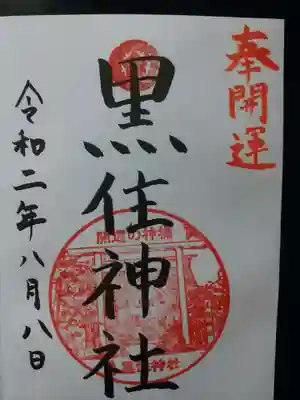 奉開運
黒住神社
開運の神様
令和二年八月八日